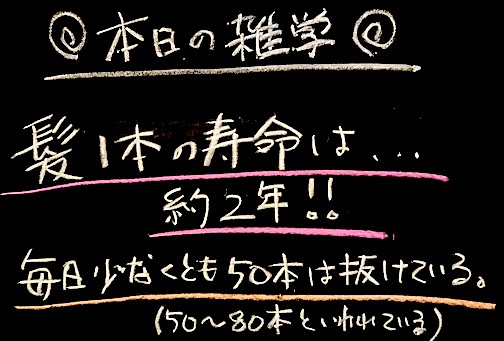 ◎本日の雑学◎
髪1本の寿命は...
約2年!!
毎日少なくとも50本は抜けている。
(50〜80本といわれている)